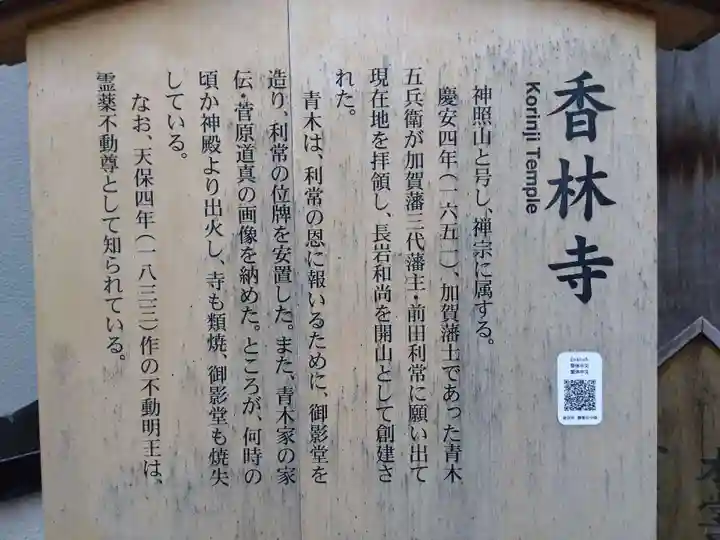 香林寺
Korinji Temple
神照山と号し、禅宗に属する。
慶安四年(一六五一)、加賀藩士であった青木
五兵衛が加賀藩三代藩主・前田利常に願い出て
現在地を拝領し、長岩和尚を開山として創建さ
れた。
青木は、利常の恩に報いるために、御影堂を
造り、利常の位牌を安置した。また、青木家の家
伝・菅原道真の画像を納めた。ところが、何時の
頃か神殿より出火し、寺も類焼、御影堂も焼失
している。
なお、天保四年(一八三三)作の不動明王は、
霊薬不動尊として知られている。